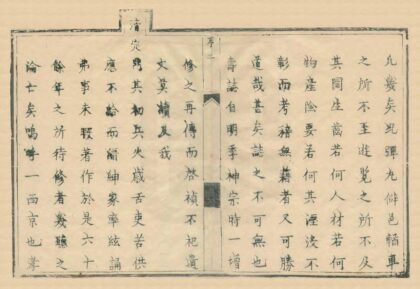 凡幾矣地踞九僻邑輶車
之所不至遊覽之所不及
其間生齒若何人材若何
物產險要若何其湮沒不
彰而考稽無藉者又可勝
道哉甚矣誌之不可無也
壽誌自明季神宗時一增
序二
修之再傳而啓禎不祀遺
文莫續及我
清定鼎其初兵火吏苦供
應不給而紳家率絃誦
弗事未暇著作於是六十
餘年之所待修者幾聽之
淪亡矣嗚呼一西京也摹